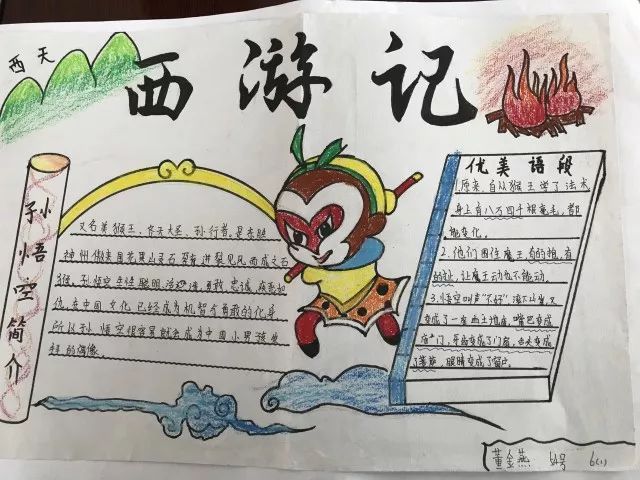 西天
西游记
孙悟空简介
又名美猴王、齐天大圣、孙行者。是东胜
神州傲来国花果山灵石孕育迸裂见风而成之石
猴。孙悟空生性聪明、活泼、勇敢、忠诚、疾恶如
仇，在中国文化已经成为机智与勇敢的化身
所以孙悟空很容易就会成为中国小男孩崇
拜的偶像。
优美语段
1.原来，自从猴王学了法术
身上有八万四千根毫毛，都
能变化。
2.他们困住魔王，有的抱，有
的扯，让魔王动也不能动。
3.悟空叫声“不好”滚下山崖又
变成了一座土地庙，嘴巴变成
庙门，牙齿变成了门扇，舌头变成
了菩萨，眼睛变成了窗户。
董金燕 54号 6(1)